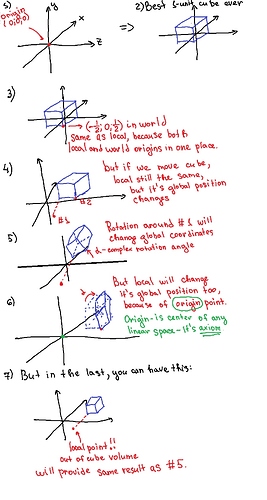 1)
origin
(0,0,0)
y
x
z
=>
2) Best 1-unit cube ever
3)
(-½, 0, ½) in world
same as local, because both
local and world origins in one place.
4)
but if we move cube,
local still the same,
but it's global position
changes
#1
#2
5)
Rotation around #1 will
change global coordinates
α-complex rotation angle
6)
But local will change
it's global position too,
because of origin point.
Origin-is center of any
linear space-it's axiom
7) But in the last, you can have this:
local point!!
out of cube volume
will provide same result as #5.